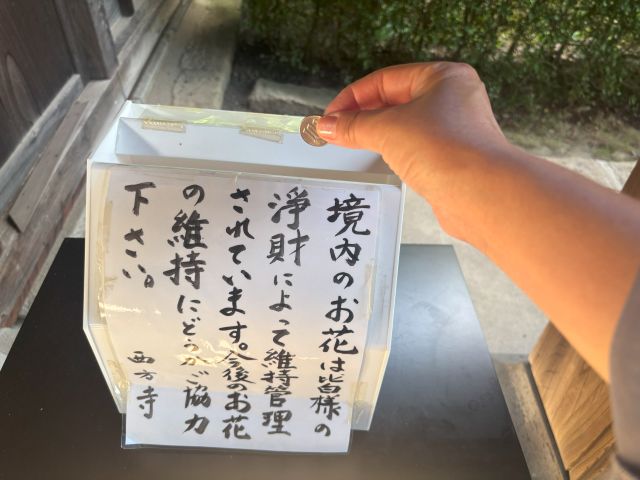 境内のお花は皆様の
浄財によって維持管理
されています。今後のお花
の維持にどうかご協力
下さい。
西方寺